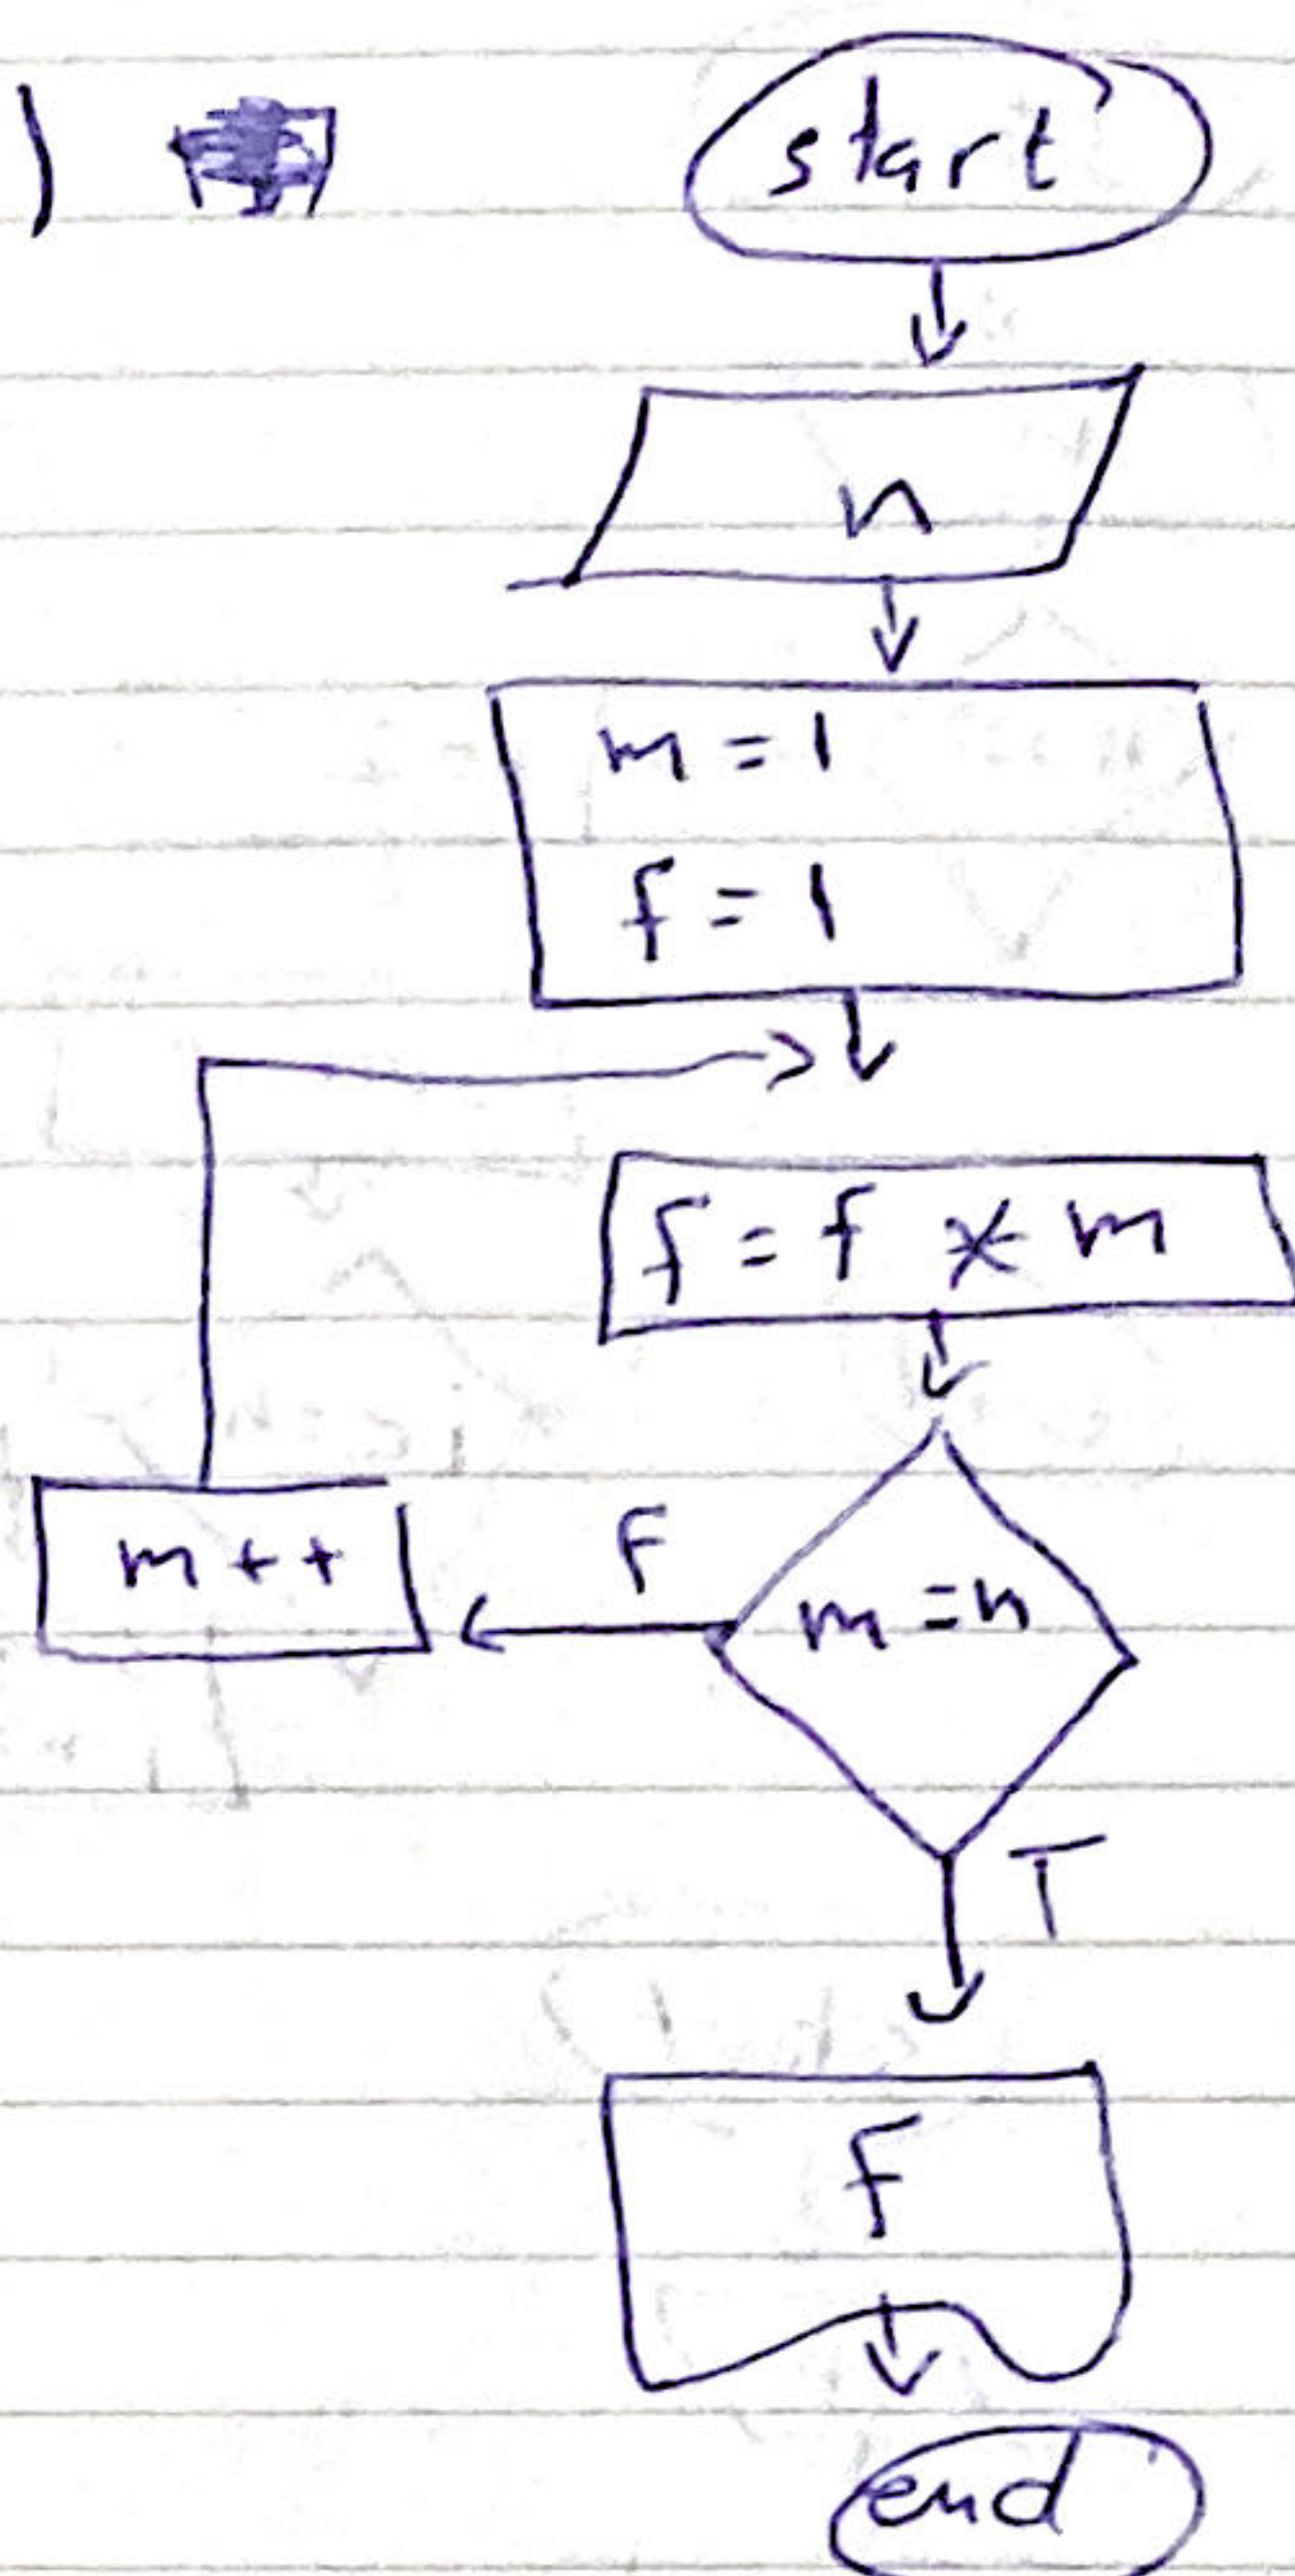 )
start
n
m = 1
f = 1
f = f * m
m++
F
m = n
T
F
end